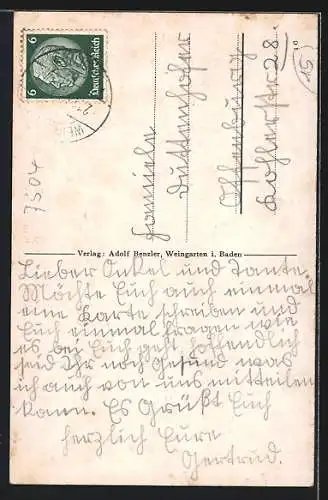 6 Deutsches Reich 6
7304
15
Familie
Duttenhöfer
Offenburg
28.
Verlag: Adolf Benzler, Weingarten i. Baden
Lieber Onkel und Tante.
Möchte Euch auch einmal
eine Karte schreiben und
Euch einmal fragen wie
es bei Euch geht hoffendlich
seid Ihr noch gesund was
ich auch von uns mitteilen
kann. Es Grüßt Euch
herzlich Eure
Gertrud.